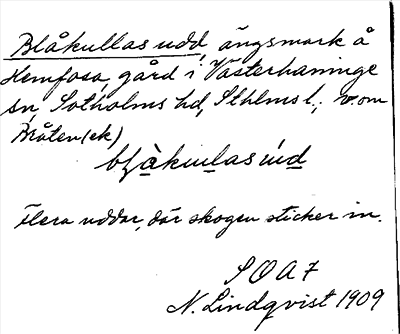 Blåkullas udd, ängsmark å
Hemfosa gård i Västerhaninge
sn, Sotholms hd, Sthlms l.; v. om
Bråten (ek)
Flera uddar, där skogen sticker in.
S O A 7
N. Lindqvist 1909